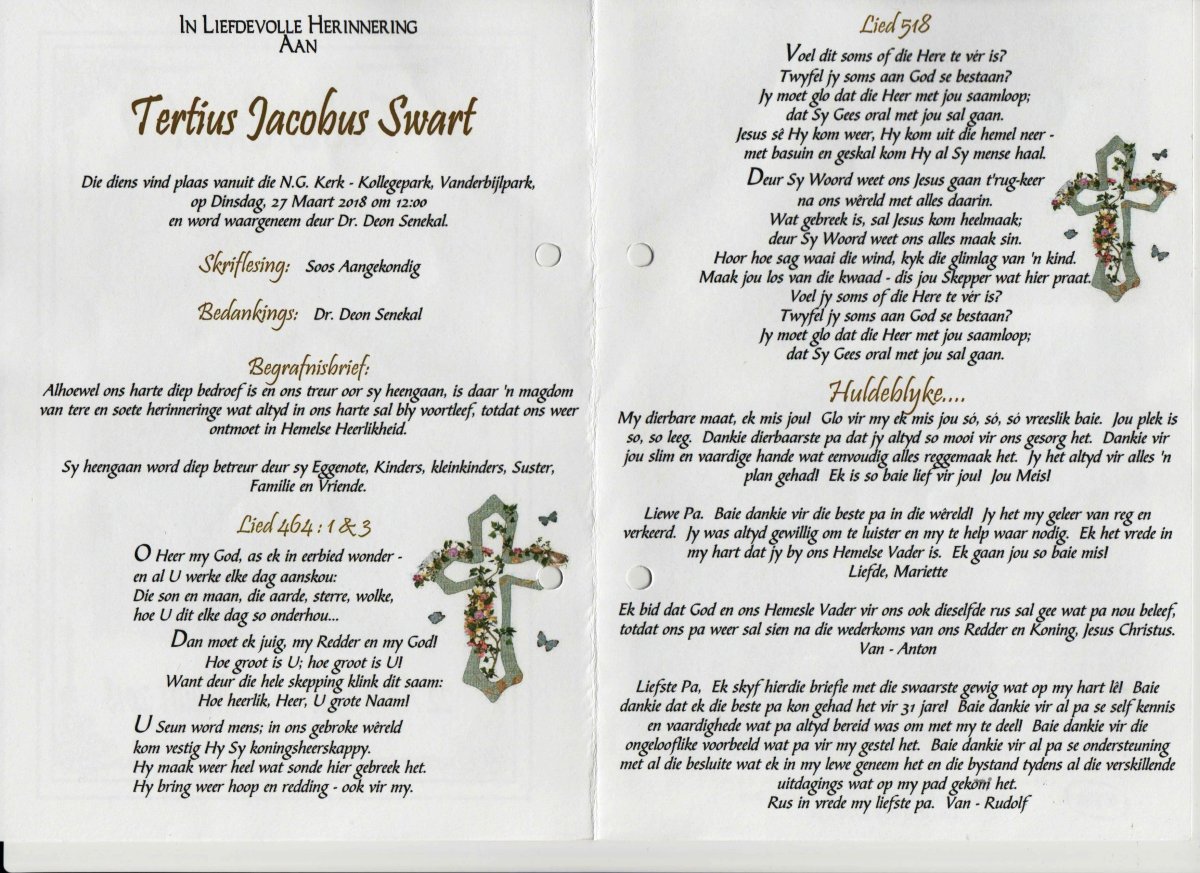 In Liefdevolle Herinnering
Aan
Tertius Jacobus Swart
Die diens vind plaas vanuit die N.G. Kerk - Kollegepark, Vanderbijlpark,
op Dinsdag, 27 Maart 2018 om 12:00
en word waargeneem deur Dr. Deon Senekal.
Skriflesing: Soos Aangekondig
Bedankings: Dr. Deon Senekal
Begrafnisbrief:
Alhoewel ons harte diep bedroef is en ons treur oor sy heengaan, is daar 'n magdom
van tere en soete herinneringe wat altyd in ons harte sal bly voortleef, totdat ons weer
ontmoet in Hemelse Heerlikheid.
Sy heengaan word diep betreur deur sy Eggenote, Kinders, kleinkinders, Suster,
Familie en Vriende.
Lied 464 : 1 & 3
O Heer my God, as ek in eerbied wonder -
en al U werke elke dag aanskou:
Die son en maan, die aarde, sterre, wolke,
hoe U dit elke dag so onderhou...
Dan moet ek juig, my Redder en my God!
Hoe groot is U; hoe groot is U!
Want deur die hele skepping klink dit saam:
Hoe heerlik, Heer, U grote Naam!
U Seun word mens; in ons gebroke wêreld
kom vestig Hy Sy koningsheerskappy.
Hy maak weer heel wat sonde hier gebreek het.
Hy bring weer hoop en redding - ook vir my.
Lied 518
Voel dit soms of die Here te vér is?
Twyfel jy soms aan God se bestaan?
Jy moet glo dat die Heer met jou saamloop;
dat Sy Gees oral met jou sal gaan.
Jesus sê Hy kom weer, Hy kom uit die hemel neer -
met basuin en geskal kom Hy al Sy mense haal.
Deur Sy Woord weet ons Jesus gaan t'rug-keer
na ons wêreld met alles daarin.
Wat gebreek is, sal Jesus kom heelmaak;
deur Sy Woord weet ons alles maak sin.
Hoor hoe sag waai die wind, kyk die glimlag van 'n kind.
Maak jou los van die kwaad - dis jou Skepper wat hier praat.
Voel jy soms of die Here te vér is?
Twyfel jy soms aan God se bestaan?
Jy moet glo dat die Heer met jou saamloop;
dat Sy Gees oral met jou sal gaan.
Huldeblyke....
My dierbare maat, ek mis jou! Glo vir my ek mis jou só, só, só vreeslik baie. Jou plek is
so, so leeg. Dankie dierbaarste pa dat jy altyd so mooi vir ons gesorg het. Dankie vir
jou slim en vaardige hande wat eenvoudig alles reggemaak het. Jy het altyd vir alles 'n
plan gehad! Ek is so baie lief vir jou! Jou Meis!
Liewe Pa. Baie dankie vir die beste pa in die wêreld! Jy het my geleer van reg en
verkeerd. Jy was altyd gewillig om te luister en my te help waar nodig. Ek het vrede in
my hart dat jy by ons Hemelse Vader is. Ek gaan jou so baie mis!
Liefde, Mariette
Ek bid dat God en ons Hemesle Vader vir ons ook dieselfde rus sal gee wat pa nou beleef,
totdat ons pa weer sal sien na die wederkoms van ons Redder en Koning, Jesus Christus.
Van - Anton
Liefste Pa, Ek skyf hierdie briefie met die swaarste gewig wat op my hart lê! Baie
dankie dat ek die beste pa kon gehad het vir 31 jare! Baie dankie vir al pa se self kennis
en vaardighede wat pa altyd bereid was om met my te deel! Baie dankie vir die
ongelooflike voorbeeld wat pa vir my gestel het. Baie dankie vir al pa se ondersteuning
met al die besluite wat ek in my lewe geneem het en die bystand tydens al die verskillende
uitdagings wat op my pad gekom het.
Rus in vrede my liefste pa. Van - Rudolf